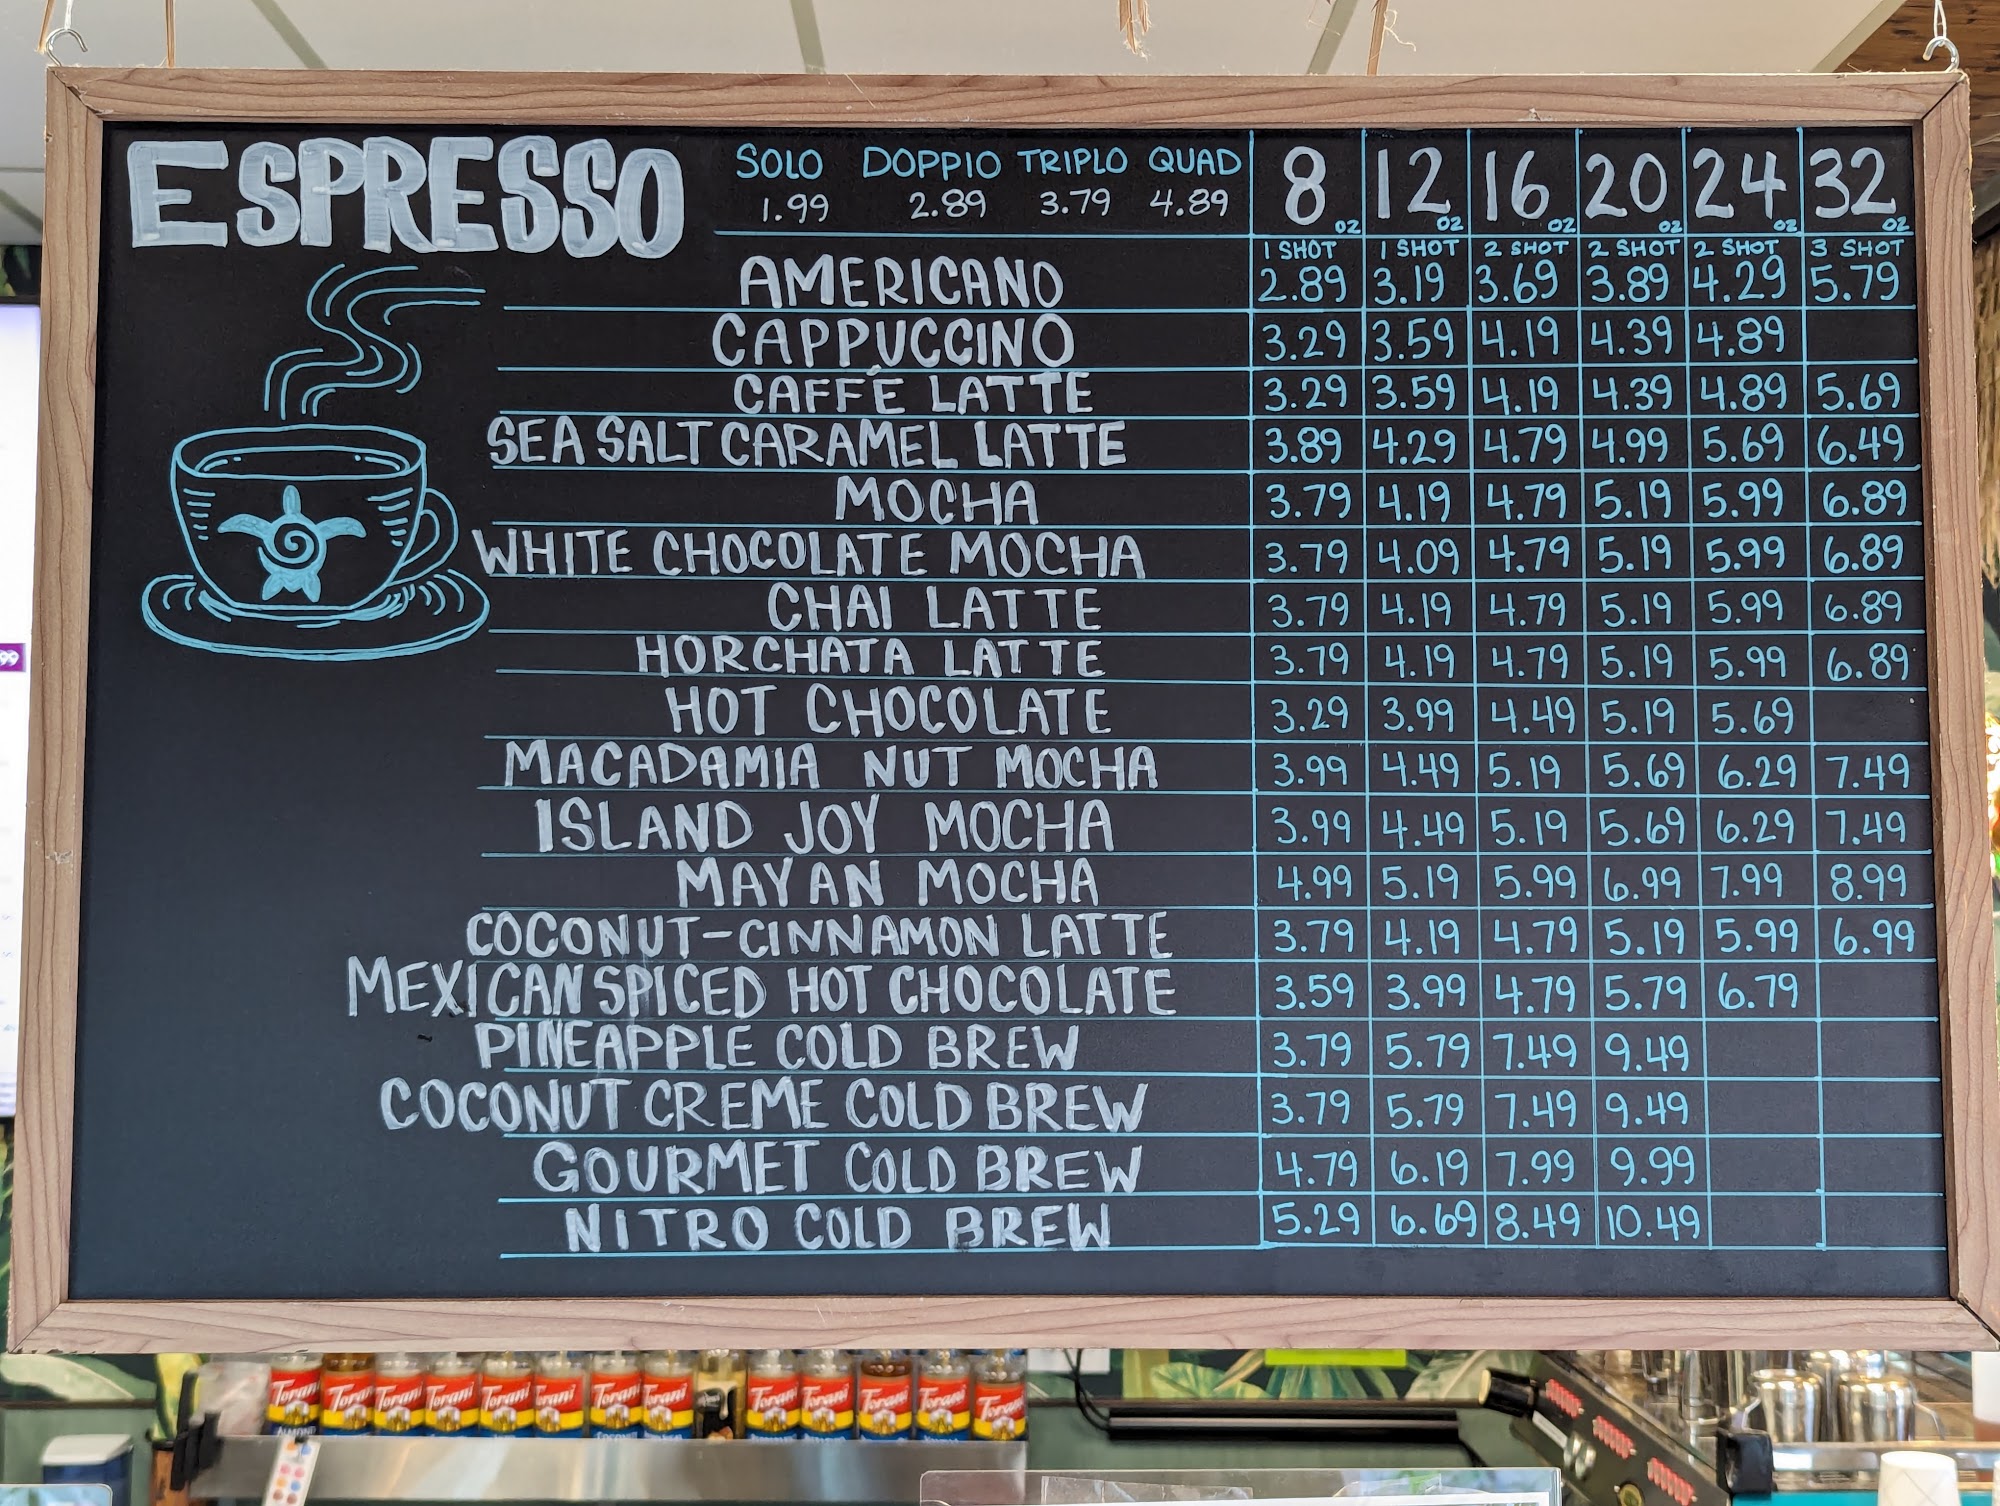 ESPRESSO SOLO DOPPIO TRIPLO QUAD 8 OZ 12 OZ 16 OZ 20 OZ 24 OZ 32 OZ
1.99 2.89 3.79 4.89
1 SHOT 1 SHOT 2 SHOT 2 SHOT 2 SHOT 3 SHOT
AMERICANO 2.89 3.19 3.69 3.89 4.29 5.79
CAPPUCCINO 3.29 3.59 4.19 4.39 4.89
CAFFÉ LATTE 3.29 3.59 4.19 4.39 4.89 5.69
SEA SALT CARAMEL LATTE 3.89 4.29 4.79 4.99 5.69 6.49
MOCHA 3.79 4.19 4.79 5.19 5.99 6.89
WHITE CHOCOLATE MOCHA 3.79 4.09 4.79 5.19 5.99 6.89
CHAI LATTE 3.79 4.19 4.79 5.19 5.99 6.89
HORCHATA LATTE 3.79 4.19 4.79 5.19 5.99 6.89
HOT CHOCOLATE 3.29 3.99 4.49 5.19 5.69
MACADAMIA NUT MOCHA 3.99 4.49 5.19 5.69 6.29 7.49
ISLAND JOY MOCHA 3.99 4.49 5.19 5.69 6.29 7.49
MAYAN MOCHA 4.99 5.19 5.99 6.99 7.99 8.99
COCONUT-CINNAMON LATTE 3.79 4.19 4.79 5.19 5.99 6.99
MEXICAN SPICED HOT CHOCOLATE 3.59 3.99 4.79 5.79 6.79
PINEAPPLE COLD BREW 3.79 5.79 7.49 9.49
COCONUT CREME COLD BREW 3.79 5.79 7.49 9.49
GOURMET COLD BREW 4.79 6.19 7.99 9.99
NITRO COLD BREW 5.29 6.69 8.49 10.49
Torani Torani Torani Torani Torani Torani Torani Torani Torani Torani Torani Torani Torani
ALMOND COCONUT